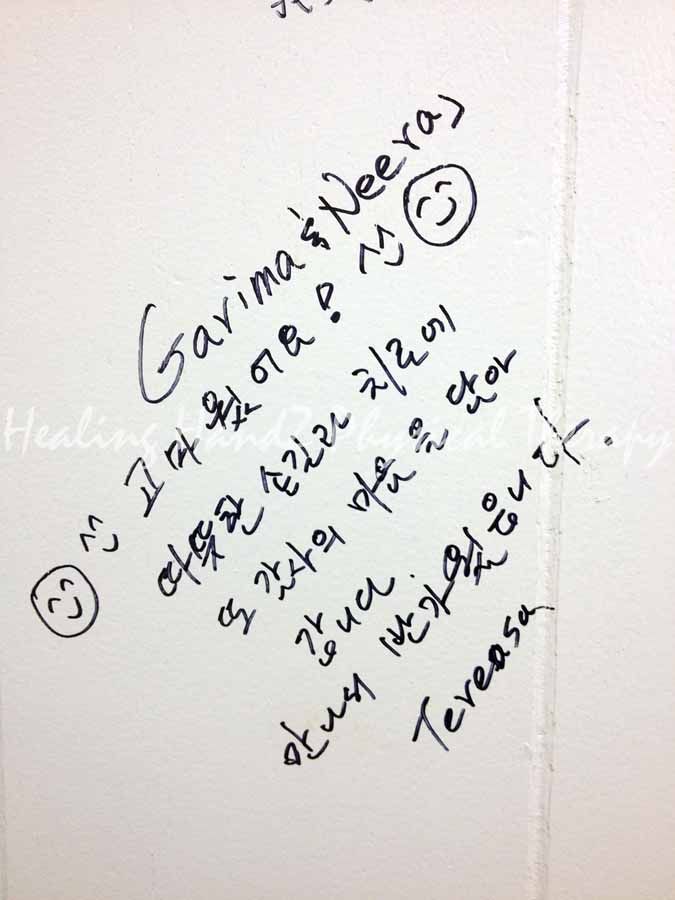 Garima & Neera,
고마웠어요!
따뜻한 손길과 치료에
또 감사의 마음을 담아
갑니다.
만나서 반가웠습니다.
Tereasa
Healing Handz Physical Therapy